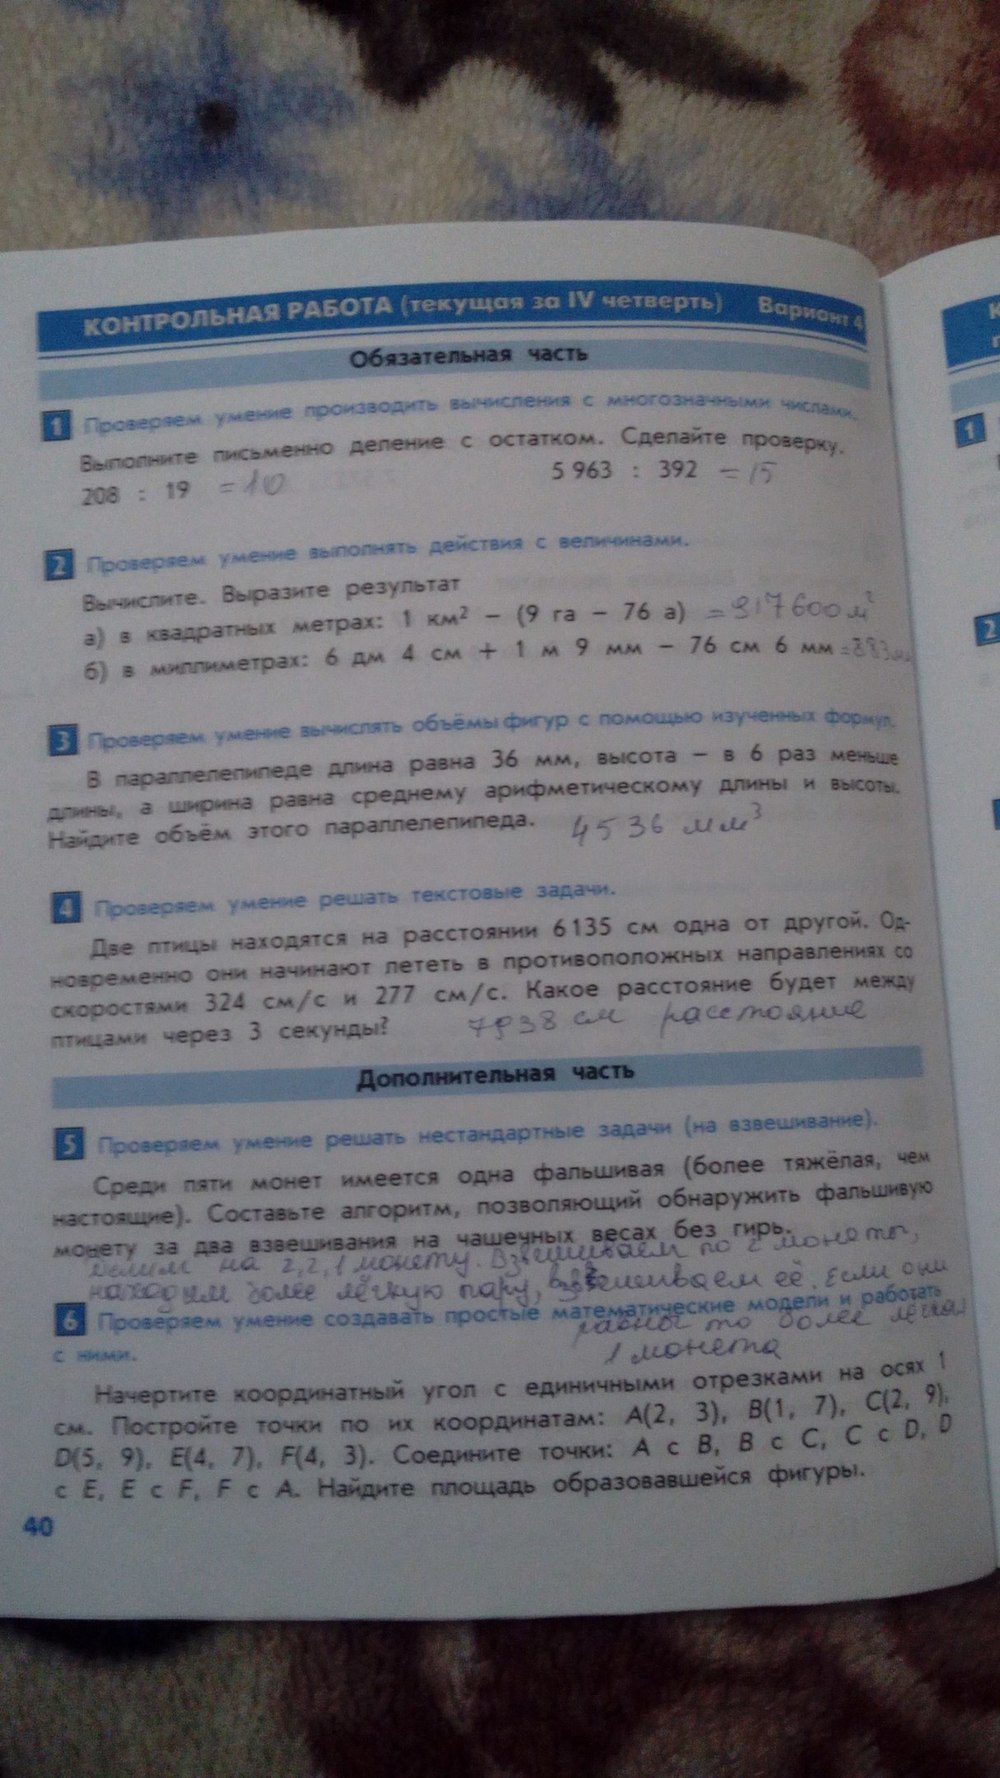 КОНТРОЛЬНАЯ РАБОТА (текущая за IV четверть) Вариант 4
Обязательная часть
1 Проверяем умение производить вычисления с многозначными числами.
Выполните письменно деление с остатком. Сделайте проверку.
208 : 19 = 10 5 963 : 392 = 15
2 Проверяем умение выполнять действия с величинами.
Вычислите. Выразите результат
а) в квадратных метрах: 1 км² – (9 га – 76 а) = 917600 м²
б) в миллиметрах: 6 дм 4 см + 1 м 9 мм – 76 см 6 мм =
3 Проверяем умение вычислять объёмы фигур с помощью изученных формул.
В параллелепипеде длина равна 36 мм, высота – в 6 раз меньше
длины, а ширина равна среднему арифметическому длины и высоты.
Найдите объём этого параллелепипеда. 4536 мм³
4 Проверяем умение решать текстовые задачи.
Две птицы находятся на расстоянии 6 135 см одна от другой. Од-
новременно они начинают лететь в противоположных направлениях со
скоростями 324 см/с и 277 см/с. Какое расстояние будет между
птицами через 3 секунды? 7938 см расстояние
Дополнительная часть
5 Проверяем умение решать нестандартные задачи (на взвешивание).
Среди пяти монет имеется одна фальшивая (более тяжёлая, чем
настоящие). Составьте алгоритм, позволяющий обнаружить фальшивую
монету за два взвешивания на чашечных весах без гирь.
Делим на 2,2,1 монету. Взвешиваем по 2 монеты,
находим более лёгкую пару, взвешиваем её. Если они
равны то более лёгкая
1 монета
6 Проверяем умение создавать простые математические модели и работать
с ними.
Начертите координатный угол с единичными отрезками на осях 1
см. Постройте точки по их координатам: A(2, 3), B(1, 7), C(2, 9),
D(5, 9), E(4, 7), F(4, 3). Соедините точки: A с B, B с C, C с D, D
с E, E с F, F с A. Найдите площадь образовавшейся фигуры.
40
1
2